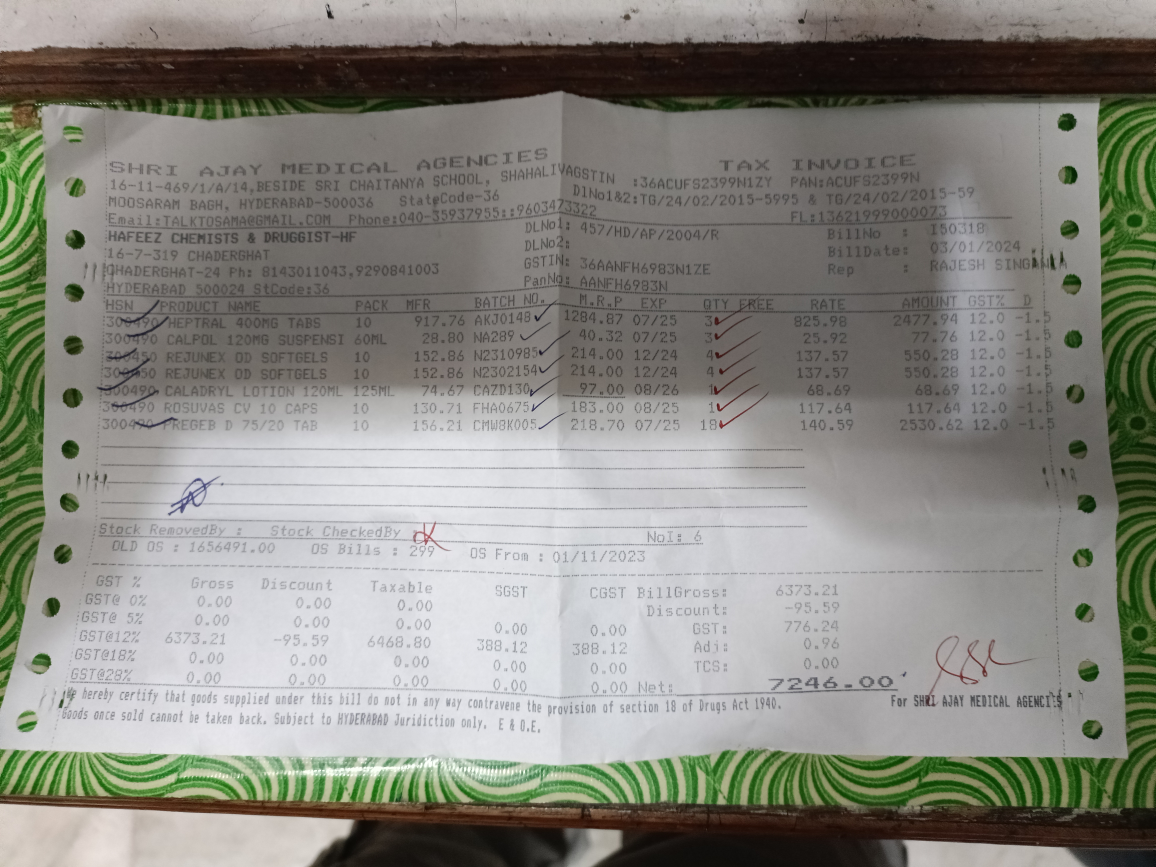 SHRI AJAY MEDICAL AGENCIES TAX INVOICE
16-11-469/1/A/14,BESIDE SRI CHAITANYA SCHOOL, SHAHALIVAGSTIN :36ACUFS2399N1ZY PAN:ACUFS2399N
MOOSARAM BAGH, HYDERABAD-500036 StateCode-36 DlNo1&2:TG/24/02/2015-5995 & TG/24/02/2015-59
Email:TALKTOSAMA@GMAIL.COM Phone:040-35937955::9603473322 FL:13621999000073
HAFEEZ CHEMISTS & DRUGGIST-HF DLNo1: 457/HD/AP/2004/R BillNo : I50318
16-7-319 CHADERGHAT DLNo2: BillDate: 03/01/2024
CHADERGHAT-24 Ph: 8143011043,9290841003 GSTIN: 36AANFH6983N1ZE Rep : RAJESH
HYDERABAD 500024 StCode:36 PanNo: AANFH6983N
HSN PRODUCT NAME PACK MFR BATCH NO. M.R.P EXP QTY FREE RATE AMOUNT GST% D
300490 HEPTRAL 400MG TABS 10 917.76 AKJ0148 1284.87 07/25 3 825.98 2477.94 12.0 -1.5
300490 CALPOL 120MG SUSPENSI 60ML 28.80 NA289 40.32 07/25 3 25.92 77.76 12.0 -1.5
300450 REJUNEX OD SOFTGELS 10 152.86 N2310985 214.00 12/24 4 137.57 550.28 12.0 -1.5
300450 REJUNEX OD SOFTGELS 10 152.86 N2302154 214.00 12/24 4 137.57 550.28 12.0 -1.5
300490 CALADRYL LOTION 120ML 125ML 74.67 CAZD130 97.00 08/26 1 68.69 68.69 12.0 -1.5
300490 ROSUVAS CV 10 CAPS 10 130.71 FHA0675 183.00 08/25 1 117.64 117.64 12.0 -1.5
300490 PREGEB D 75/20 TAB 10 156.21 CMW8K005 218.70 07/25 18 140.59 2530.62 12.0 -1.5
Stock RemovedBy : Stock CheckedBy NoI: 6
OLD OS : 1656491.00 OS Bills : 299 OS From : 01/11/2023
GST % Gross Discount Taxable SGST CGST BillGross: 6373.21
GST@ 0% 0.00 0.00 0.00 Discount: -95.59
GST@ 5% 0.00 0.00 0.00 0.00 0.00 GST: 776.24
GST@12% 6373.21 -95.59 6468.80 388.12 388.12 Adj: 0.96
GST@18% 0.00 0.00 0.00 0.00 0.00 TCS: 0.00
GST@28% 0.00 0.00 0.00 0.00 0.00 Net: 7246.00
We hereby certify that goods supplied under this bill do not in any way contravene the provision of section 18 of Drugs Act 1940. For SHRI AJAY MEDICAL AGENCIES
Goods once sold cannot be taken back. Subject to HYDERABAD Juridiction only. E & O.E.